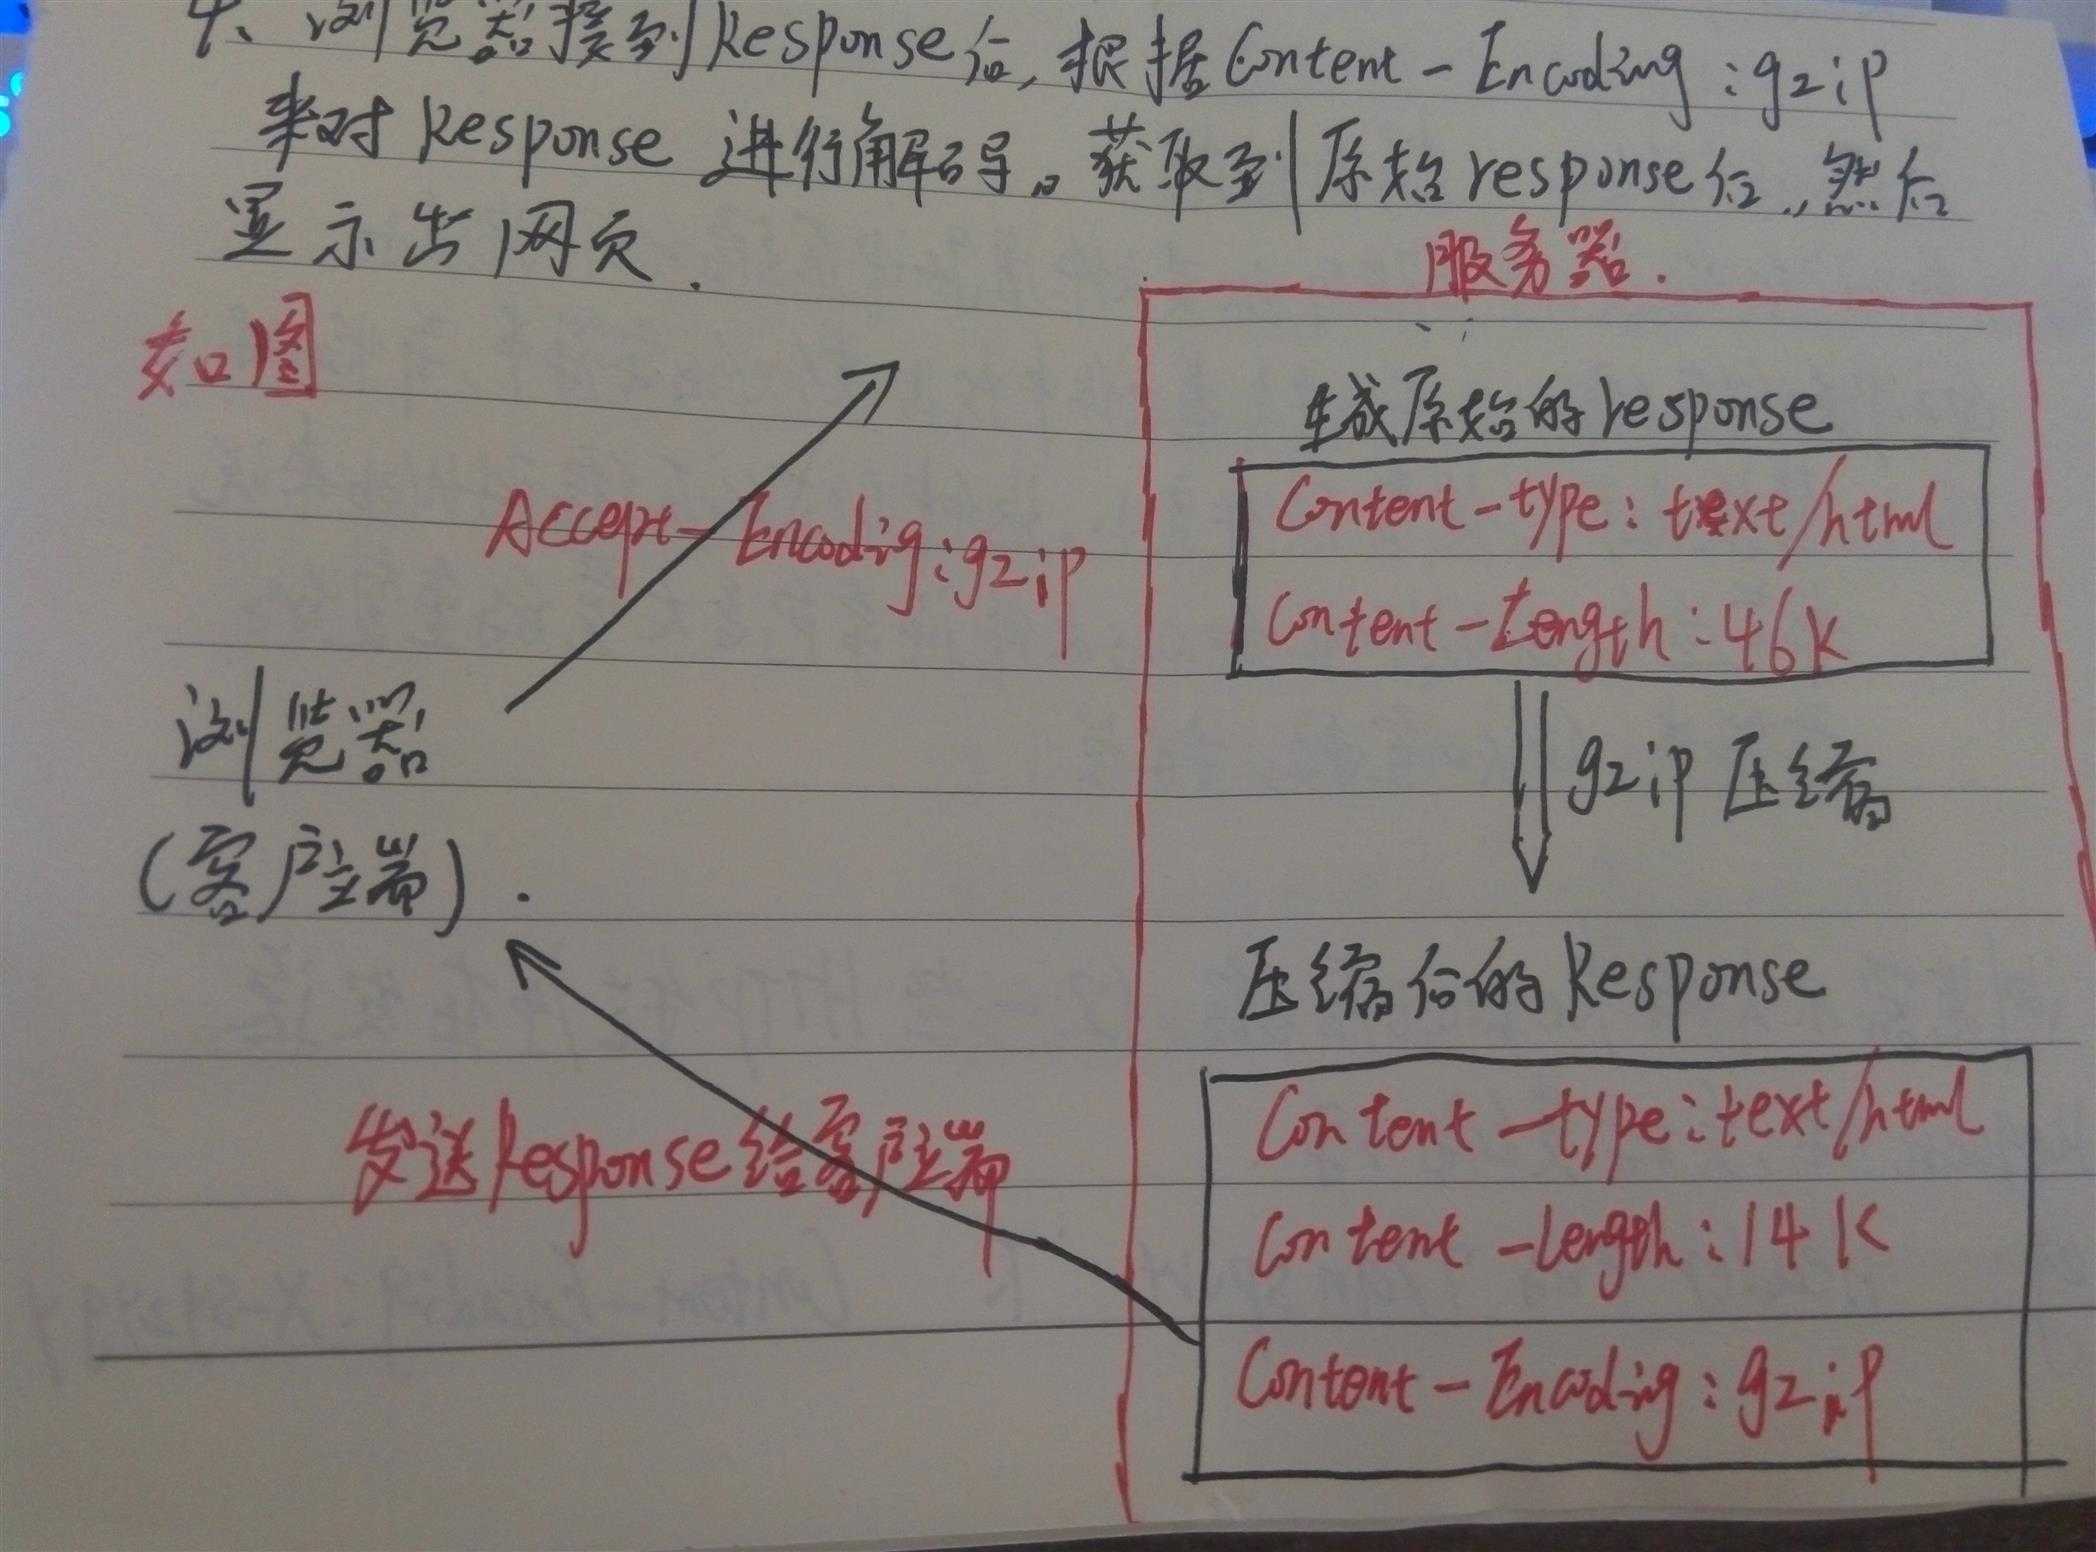 4、浏览器接到Response后，根据Content-Encoding:gzip
来对Response进行解码。获取到原始response后，然后
显示出网页.
服务器.
如图
生成原始的response
Accept-Encoding:gzip
Content-type: text/html
Content-Length:46K
浏览器
(客户端).
gzip压缩
压缩后的Response
发送Response给客户端
Content-type:text/html
Content-Length:14K
Content-Encoding:gzip